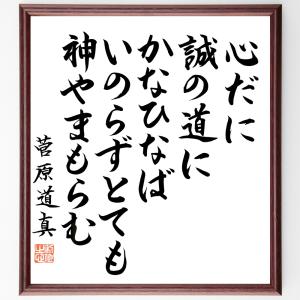 心だに
誠の道に
かなひなば
いのらずとても
神やまもらむ
菅原道真